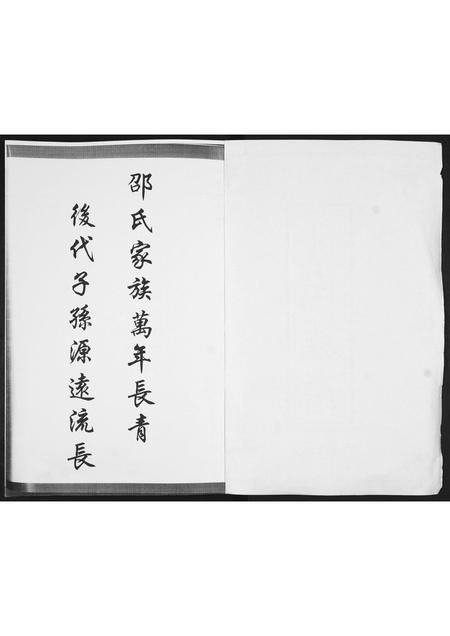 邵氏家族萬年長青
後代子孫源遠流長